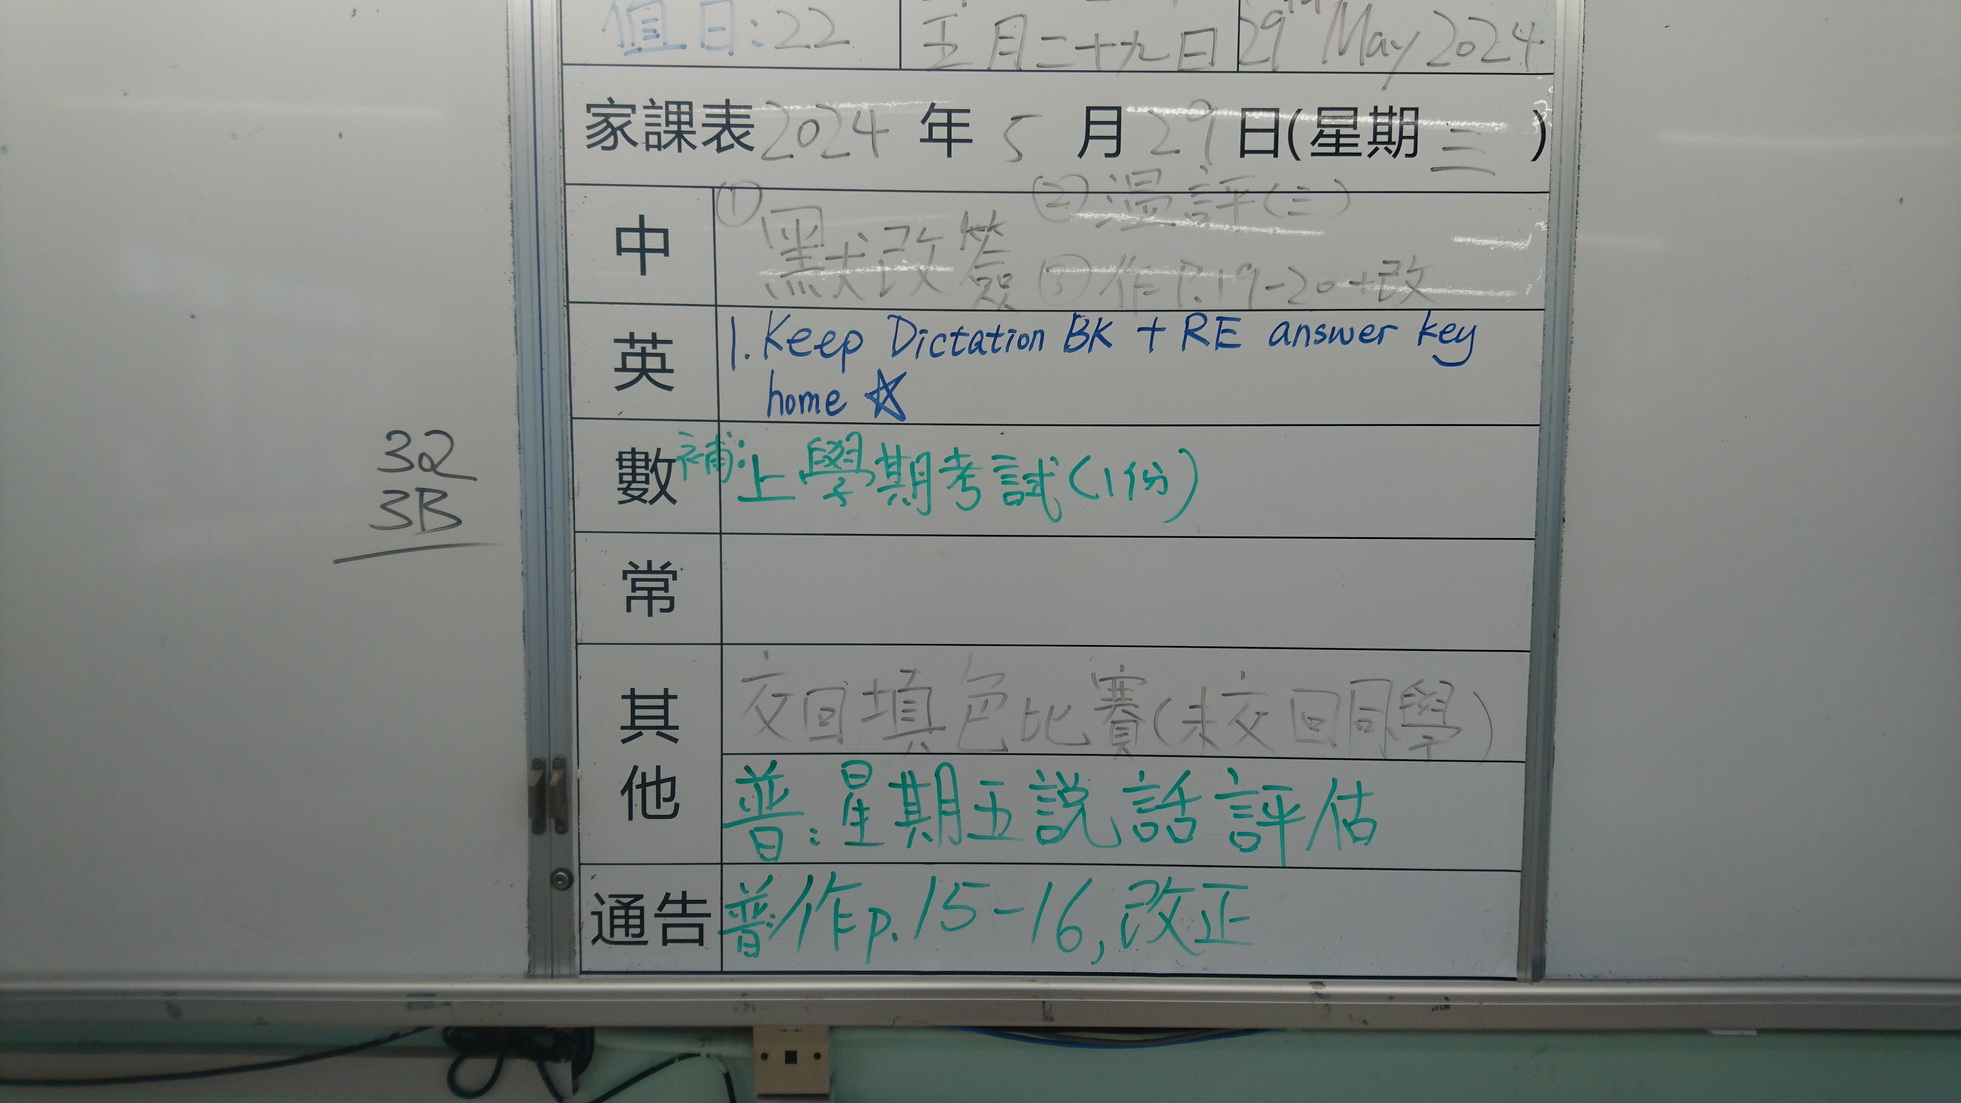 值日:22
五月二十九日
29th May 2024
家課表2024年5月29日(星期三)
中
①默改簽
②溫評(三)
③作P.19-20+改
英
1. Keep Dictation BK + RE answer key
home ☆
數
補:上學期考試(1份)
3Q
3B
常
其他
交回填色比賽(未交回同學)
普:星期五説話評估
通告
普:作p.15-16,改正